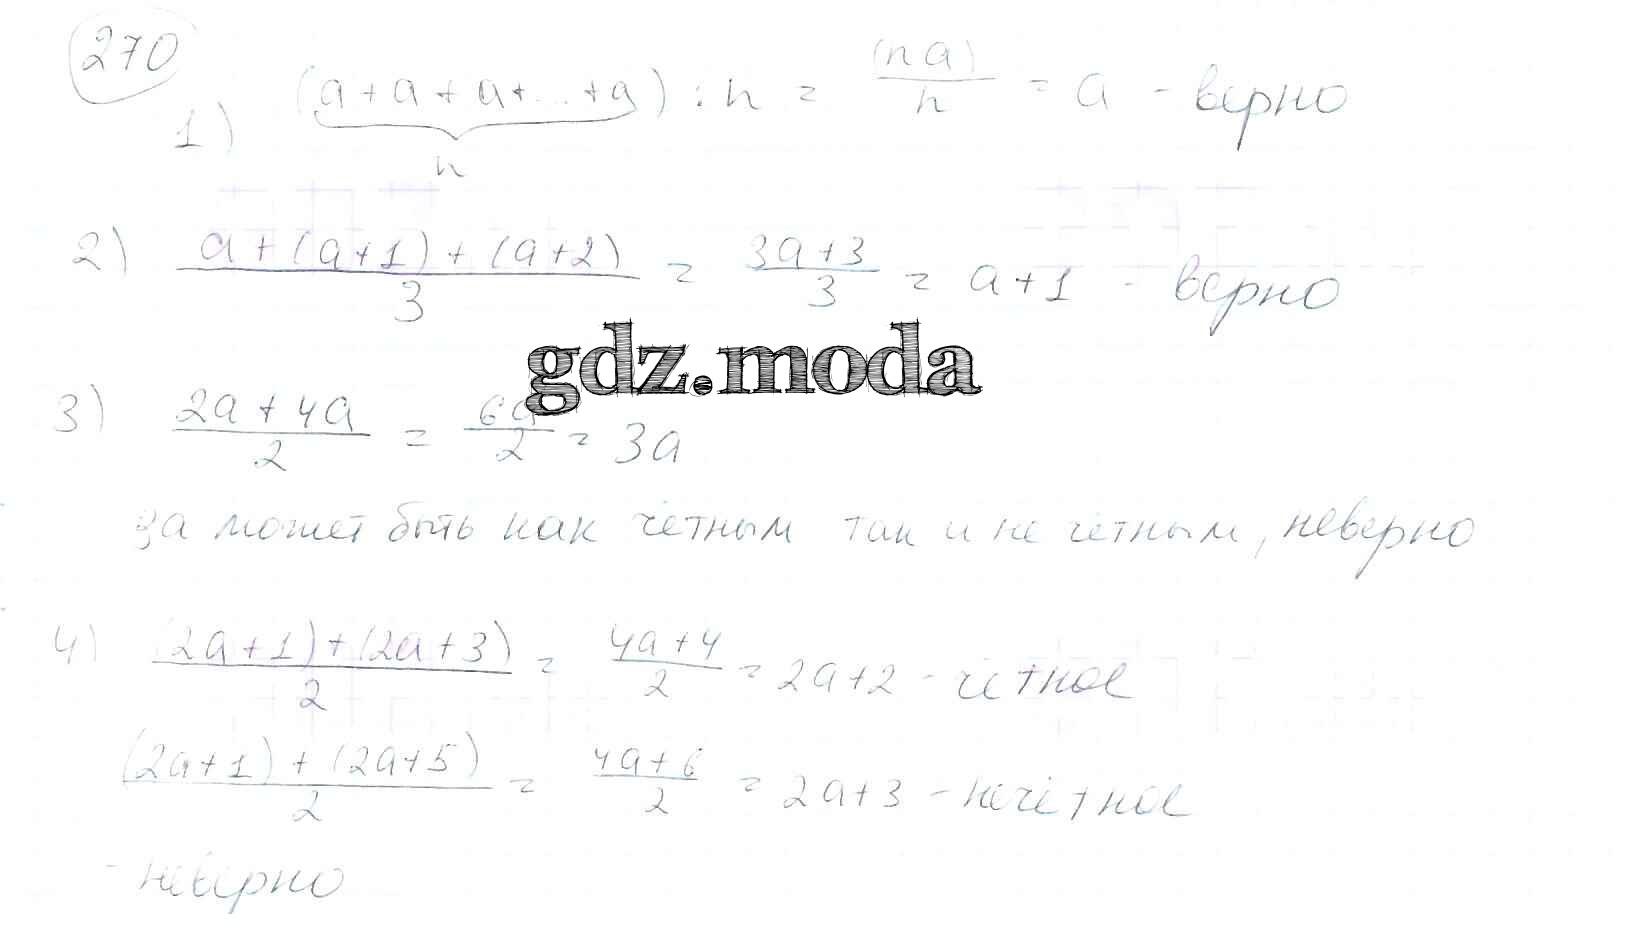 270
1) (a + a + a + ... + a) : n = (na)/n = a - верно
n
2) (a + (a+1) + (a+2))/3 = (3a+3)/3 = a+1 - верно
gdz.moda
3) (2a + 4a)/2 = 6a/2 = 3a
3а может быть как чётным так и не чётным, неверно
4) ((2a+1)+(2a+3))/2 = (4a+4)/2 = 2a+2 - чётное
((2a+1) + (2a+5))/2 = (4a+6)/2 = 2a+3 - нечётное
- неверно